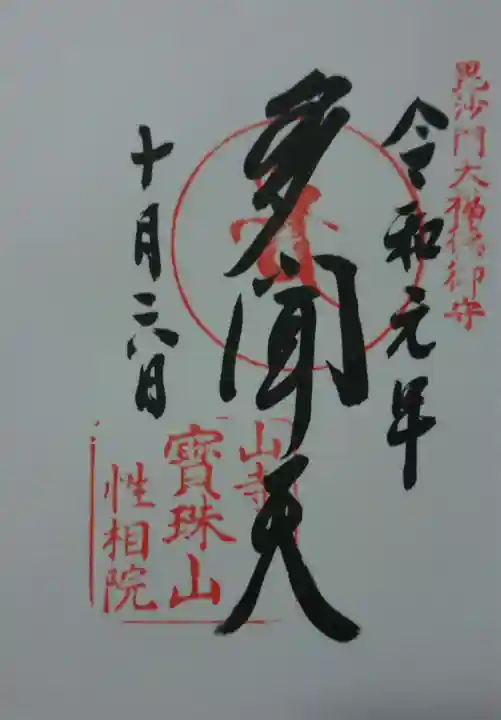 毘沙門大僧侶御守
令和元年
多聞天
十月二六日
山寺
寶珠山
性相院